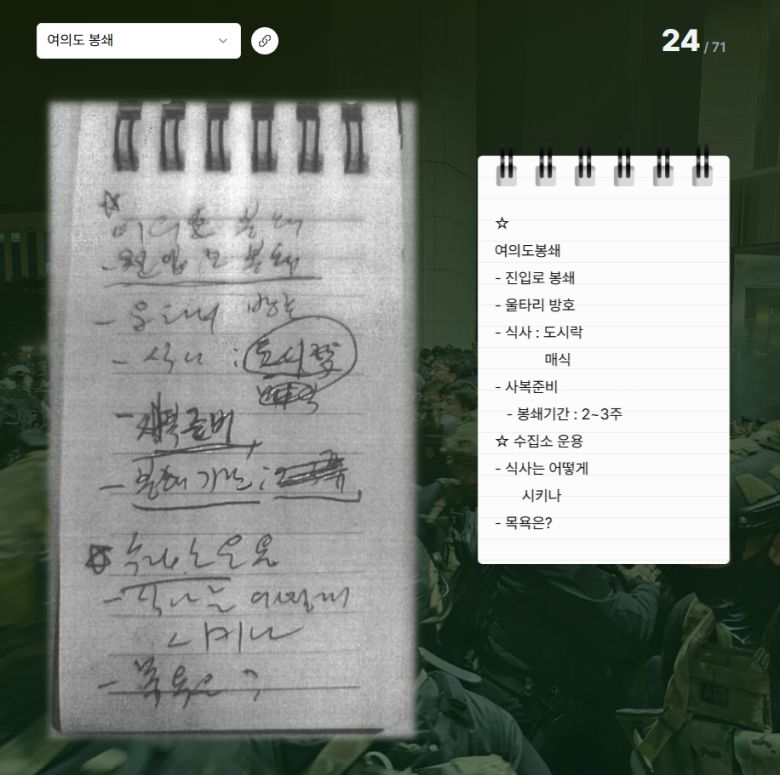 여의도 봉쇄
24 / 71
☆
여의도 봉쇄
- 진입로 봉쇄
- 울타리 방호
- 식사 : 도시락
매식
- 사복준비
- 봉쇄 기간 :
☆ 수집소 운용
- 식사는 어떻게
시키나
- 목욕은?
☆
여의도봉쇄
- 진입로 봉쇄
- 울타리 방호
- 식사 : 도시락
매식
- 사복준비
- 봉쇄기간 : 2~3주
☆ 수집소 운용
- 식사는 어떻게
시키나
- 목욕은?